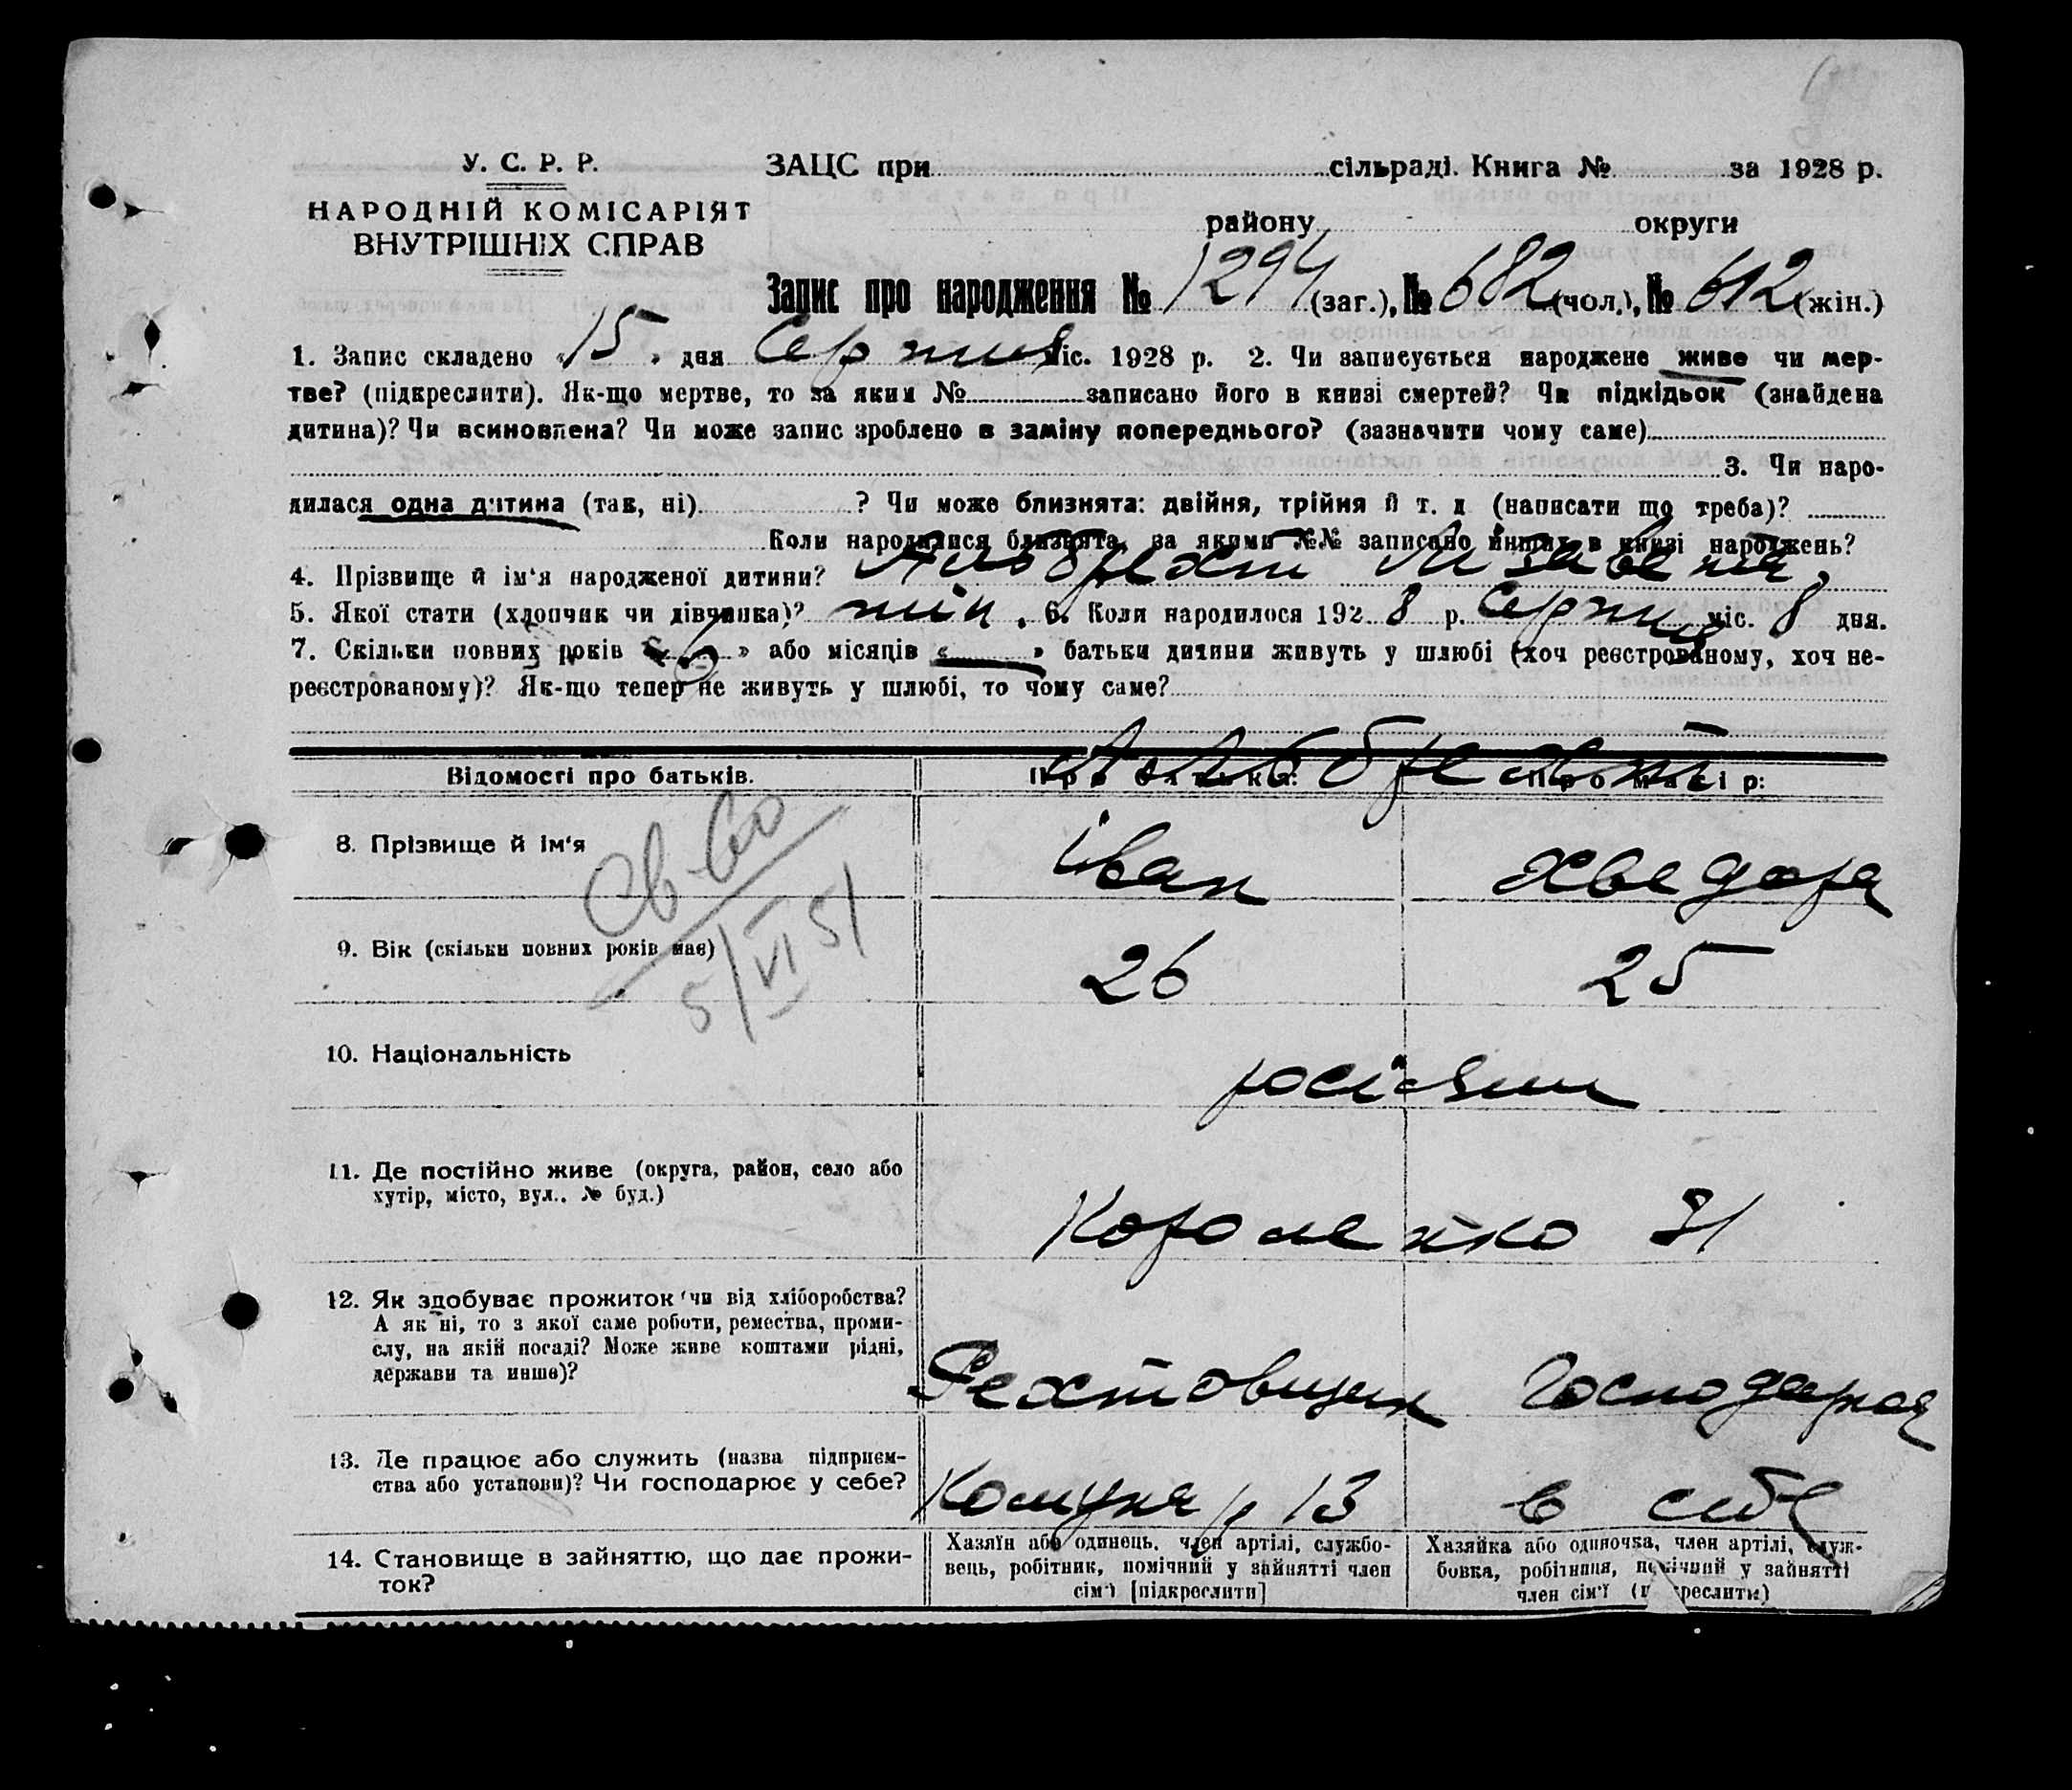 У. С. Р. Р.
НАРОДНІЙ КОМІСАРІЯТ
ВНУТРІШНІХ СПРАВ
ЗАЦС при сільраді. Книга № за 1928 р.
району округи
Запис про народження № 1294 (заг.), № 682 (чол.), № 612 (жін.)
1. Запис складено « 15 » дня Серпня міс. 1928 р. 2. Чи записується народжене живе чи мер-
тве? (підкреслити). Як-що мертве, то за яким № записано його в книзі смертей? Чи підкідьок (знайдена
дитина)? Чи всиновлена? Чи може запис зроблено в заміну попереднього? (зазначити чому саме)
3. Чи наро-
дилася одна дитина (так, ні) ? Чи може близнята: двійня, трійня й т. д (написати що треба)?
Коли народилися близнята, за якими №№ записано инших в книзі народжень?
4. Прізвище й ім'я народженої дитини? Альбрехт Лізавета,
5. Якої стати (хлопчик чи дівчинка)? жін. 6. Коли народилося 192 8 р. Серпня міс. 8 дня.
7. Скільки повних років « » або місяців « » батьки дитини живуть у шлюбі (хоч реєстрованому, хоч не-
реєстрованому)? Як-що тепер не живуть у шлюбі, то чому саме?
Відомості про батьків. Про батька: Про матір:
Альбрехт
8. Прізвище й ім'я Іван Хведора
Св-во
5/VI 51
9. Вік (скільки повних років має) 26 25
10. Національність росіяни
11. Де постійно живе (округа, район, село або
хутір, місто, вул.. № буд.)
Короленко 31
12. Як здобуває прожиток чи від хліборобства?
А як ні, то з якої саме роботи, ремества, проми-
слу, на якій посаді? Може живе коштами рідні,
держави та инше)?
Рехтовщик Господарка
13. Де працює або служить (назва підприєм-
ства або установи)? Чи господарює у себе?
Комуна 13 в себе
14. Становище в зайняттю, що дає прожи-
ток?
Хазяїн або одинець, член артілі, службо-
вець, робітник, помічний у зайнятті член
сім'ї [підкреслити]
Хазяйка або одиночка, член артілі, служ-
бовка, робітниця, помічний у зайнятті
член сім'ї (підкреслити)